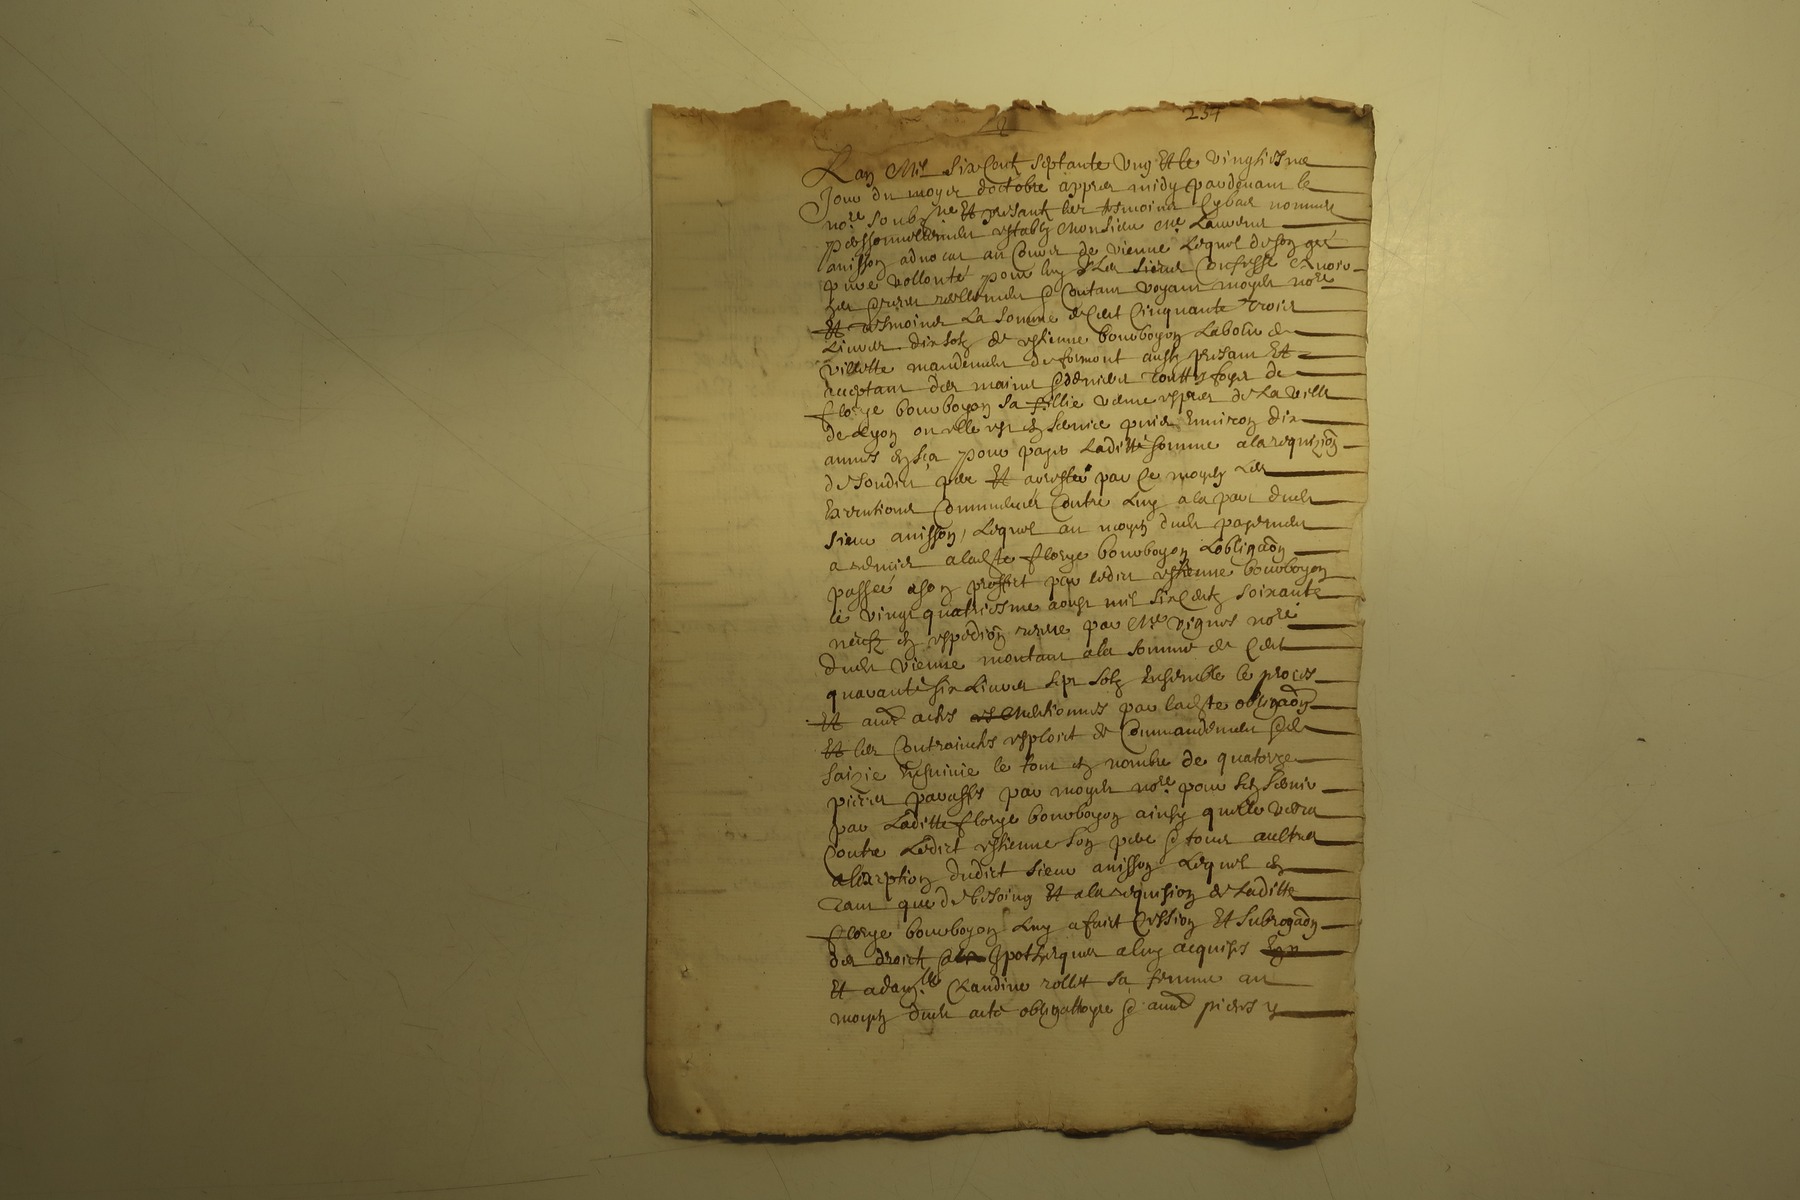 237
Lan Mil Six Centz Septante Ung Et le vingtiesme
Jour du moys doctobre appres midy pardevant le
no.re soubzne Et presantz les tesmoins Cybas nommes
personnellement estably Monsieur Me. Laurens
anisson advocat au Cours de vienne Lequel de son gré
pure vollonté pour luy & Les siens Confesse Avoir
heu & receu reellement & Contant voyant moydt nore
Et tesmoins La somme de Cent Cinquante Trois
Livres dix solz de estienne bourboyon Labour de
villette mandement de formont aussy presant Et
acceptant des mains & deniers touttesfoys de
florye bourboyon sa fillie venue expres de La ville
de Lyon ou elle est en service puis Environ dix
annes en sça pour payer Laditte somme a la requizion
de sondict pere Et arester par Ce moyen Les
Executions Commences Contre Luy a la part dudt
sieur anisson, Lequel au moyen dudt payement
a remis a ladte florye bourboyon Lobligaon
passee a son proffict par ledict estienne bourboyon
le vingt quatriesme aoust mil six Centz soixante
neufz en expedion receue par Me vignes nore
dudt vienne montant a la somme de Cent
quarante six Livres sept solz Ensemble le proces
Et autes actes mentionnes par ladte obligaon
Et les Contrainctes exploict de Commandement & de
saizie Ensuivie le tout en nombre de quatorze
pieces paraffes par moydt nore pour sen servir
par Laditte florye bourboyon ainsy quelle verra
Contre Ledict estienne son pere & tous aultres
a lexeption dudict sieur anisson Lequel en
Tant que de besoing Et a la requision de Laditte
florye bourboyon Luy a faict Cession Et subrogaon
des droictz & hypotheques a luy acquises
Et a damlle Claudine rollet sa femme au
moyen dudt acte obligattoyre & autes pieces y